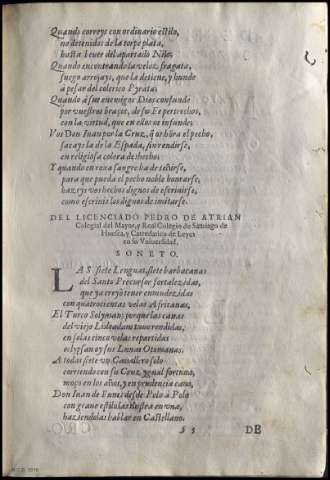 Quando correys con ordinario estilo,
no detenidos de la torpe plata,
hasta leuar del apartado Nilo.
Quando encontrando la veloz fragata,
fuego arrojays, que la detiene, y hunde
a pesar del colerico Pyrata:
Quando a sus enemigos Dios confunde
por vuestros braços, de su Fe pertrechos,
con la virtud, que en ellos os infunde:
Vos Don Iuan por la Cruz, q̃ os hōra el pecho,
sacays la de la Espada, sin rendirse,
en religiosa colera deshechos
Y quando en roxa sangre ha de teñirse,
para que pueda el pecho noble honrarse,
hazeys vos hechos dignos de escriuirse,
como escriuis los dignos de imitarse.
DEL LICENCIADO PEDRO DE ATRIAN
Colegial del Mayor, y Real Colegio de Santiago de
Huesca, y Catredatico de Leyes
en su Vniuersidad.
SONETO.
LAS siete Lenguas, siete barbacanas
del Santo Precursor fortalezidas,
que ya creyò tener enmudezidas
con quatrocientas velas Africanas,
El Turco Solyman; porque las canas
del viejo no rendidas,
en solas cinco velas repartidas
eclypsan oy sus Lunas Otomanas.
A todas siete vn Cauallero solo
corriendo con su Cruz, ygual fortuna,
moço en los años, y en prudencia cano,
Don Iuan de Funes desde Polo à Polo
con graue estilo las ilustra en vna,
haziendolas hablar en Castellano.
55 DE